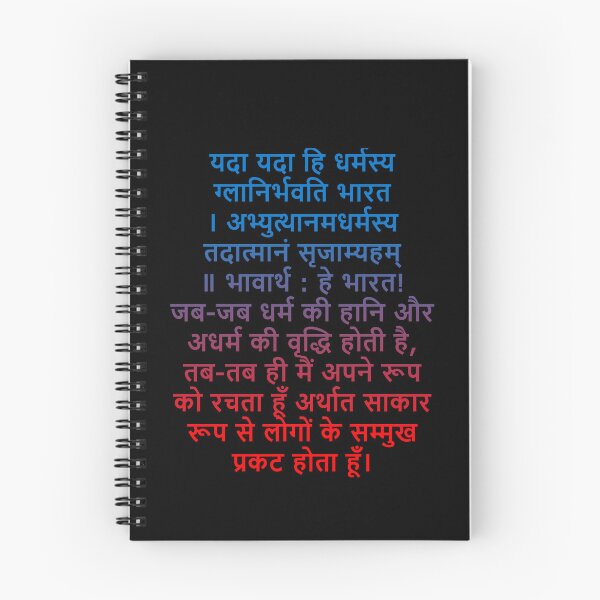 यदा यदा हि धर्मस्य
ग्लानिर्भवति भारत
। अभ्युत्थानमधर्मस्य
तदात्मानं सृजाम्यहम्
॥ भावार्थ : हे भारत!
जब-जब धर्म की हानि और
अधर्म की वृद्धि होती है,
तब-तब ही मैं अपने रूप
को रचता हूँ अर्थात साकार
रूप से लोगों के सम्मुख
प्रकट होता हूँ।